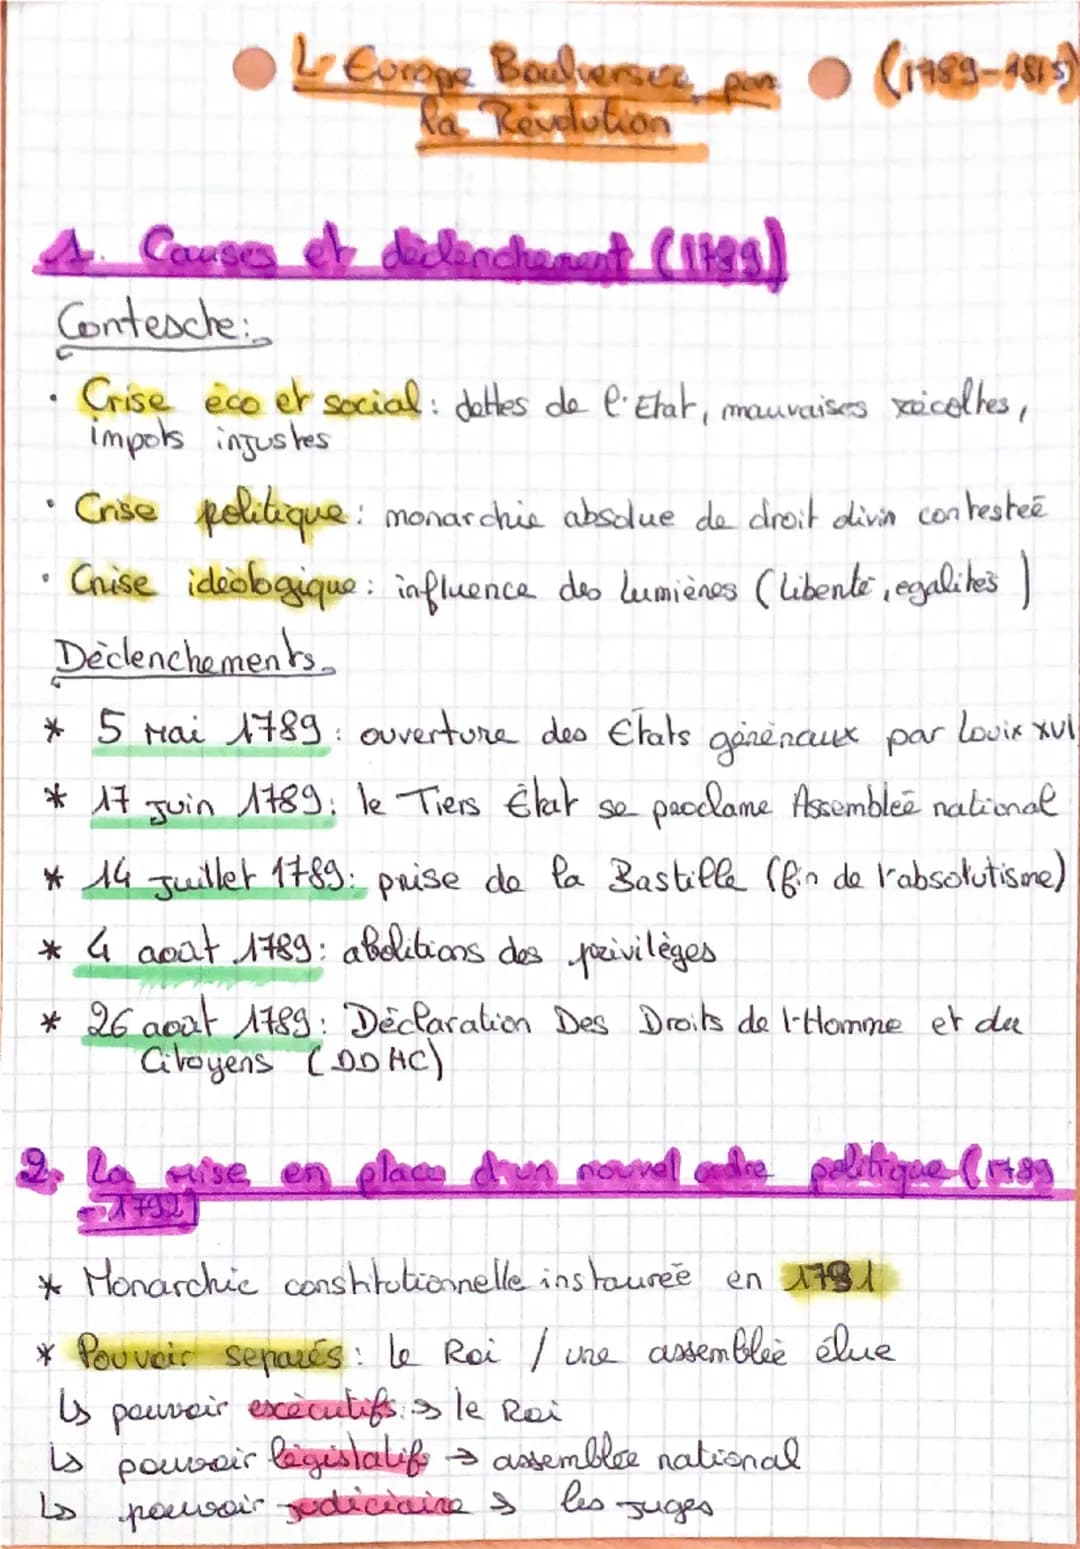 L'Europe Bouleversée par (1789-1815)
la Révolution
1. Causes et déclenchement (1789)
Contesche:
• Crise éco et social : dettes de l'Etat, mauvaises récoltes,
impots injustes
• Crise politique : monarchie absolue de droit divin contesteé
• Crise idéologique : influence des Lumières (liberté, egalités)
Déclenchements
* 5 Mai 1789 : ouverture des Etats généraux par Louix XVI
* 17 Juin 1789 : le Tiers État se proclame Assembleé national
* 14 Juillet 1789 : prise de la Bastille (fin de l'absolutisme)
* 4 août 1789 : abolitions des privilèges
* 26 août 1789 : Déclaration Des Droits de l'Homme et du
Citoyens (DDHC)
2. La mise en place d'un nouvel ordre politique (1789
-1792)
* Monarchie constitutionnelle instaureé en 1791
* Pouvoir separés : le Roi / une assemblée élue
↳ pouvoir exécutifs → le Roi
↳ pouvoir législatifs → assemblée national
↳ pouvoir judiciaire → les juges